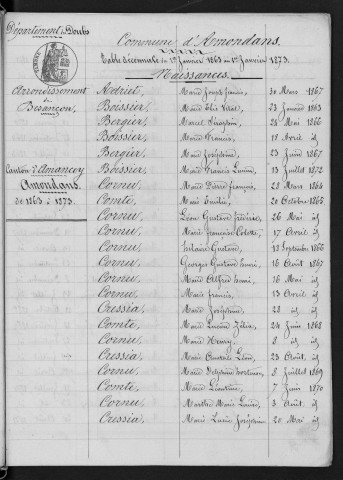 Département du Doubs
Commune d'Amondans.
Table décennale du 1er Janvier 1863 au 1er Janvier 1873.
Naissances.
Arrondissement
de
Besançon,
Canton d'Amancey
Amondans.
de 1863 à 1873.
Marie Joseph 30 Mars 1867
Boissier, Marie 23 Janvier 1863
Bergier, Marie 24 Mai 1866
Boissier, Marie Francis, 17 Avril id
Bergier, Marie Joséphine, 23 Juin 1867
Boissier, Marie Francis 13 Juillet 1872
Cornu, Marie Pierre François, 22 Mars 1864
Comte, Marie Emilie, 20 Octobre 1865
Cornu, Léon Gustave Frédéric, 26 Mai id
Cornu, Marie Françoise 17 Avril id
Cornu, Gustave, 12 Septembre 1866
Cornu, Georges Gustave Henri, 16 Août 1867
Cornu, Marie Alfred Henri, 16 Mai id
Cornu, Marie Francis, 13 Avril id
Cressia, Marie Joséphine, 23 id
Comte, Marie Lucine Zélia, 24 Juin 1868
Cornu, Marie Henry, 8 id id
Cressia, Marie Léon, 23 Août id
Cornu, Marie Delphine Hortense, 8 Juillet 1869
Comte, Marie Léontine, 7 Juin 1870
Cornu, Marthe Marie Louise, 3 Août id
Cressia, Marie Lucie Joséphine 20 Mai id